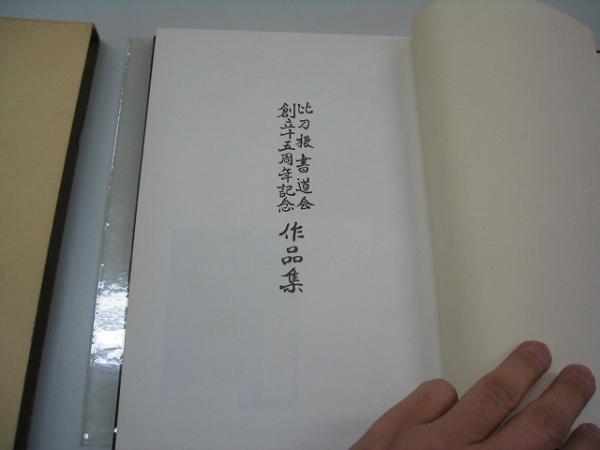 比刀振書道会
創立十五周年記念
作品集